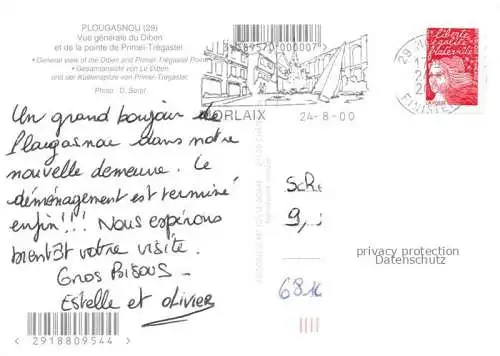 PLOUGASNOU (29)
Vue générale du Diben
et de la pointe de Primel-Trégastel
General view of the Diben and Primel-Trégastel Point
Gesamtansicht von Le Diben
und der Küstenspitze von Primel-Trégastel.
Photo : D. Serpi
3 389570 000007
MORLAIX 24-8-00
liberté
égalité
fraternité
LA POSTE
29
FINISTERE
Un grand bonjour de
Plougasnou dans notre
nouvelle demeure. Le
déménagement est terminé
enfin!!! Nous espérons
bientôt votre visite.
Gros Bisous -
Estelle et Olivier
SCHE
9,
681
privacy protection
Datenschutz
< 2918809544 >